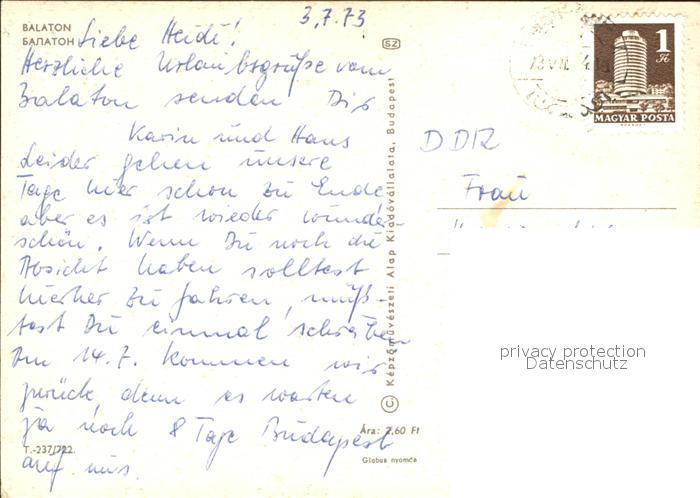 3.7.73
BALATON
БАЛАТОН
Liebe Heidi!
Herzliche Urlaubsgrüße vom
Balaton senden Dir
Karin und Hans
Leider gehen unsere
Tage hier schon zu Ende
aber es ist wieder wunder
schön. Wenn Du noch die
Absicht haben solltest
hierher zu fahren, müß-
test Du einmal schreiben
Am 14.7. kommen wir
zurück, denn es warten
ja noch 8 Tage Budapest
auf uns.
T.-237/722.
SZ
© Képzőművészeti Alap Kiadóvállalata, Budapest
Ára: 2,60 Ft
Globus nyomda
1
Ft
MAGYAR POSTA
DDR
Frau
privacy protection
Datenschutz